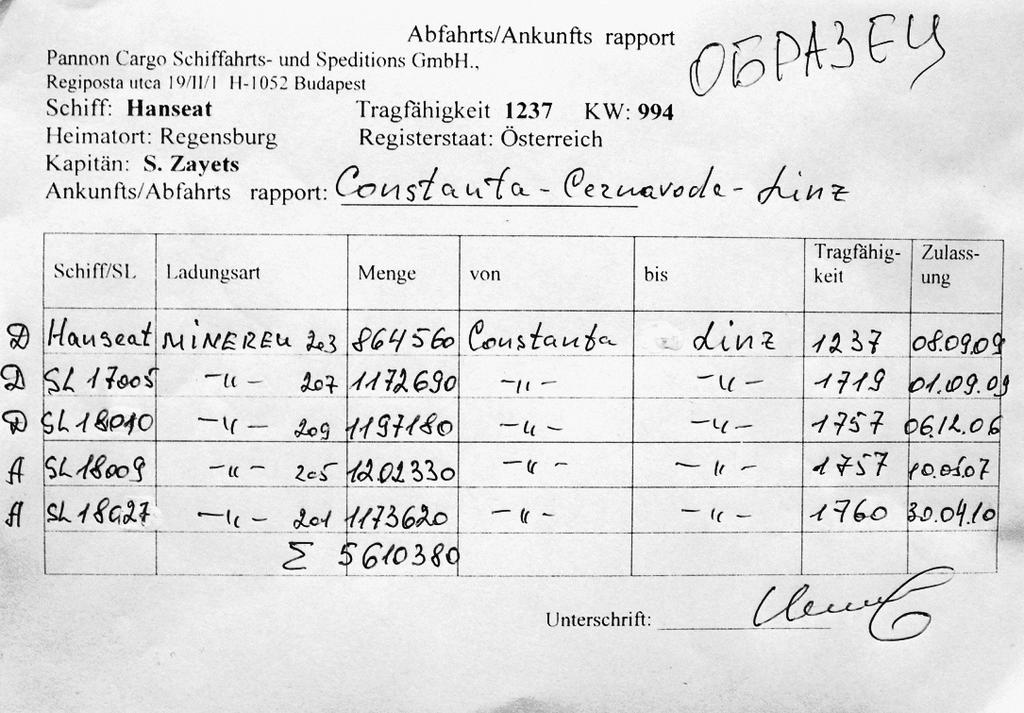 Abfahrts/Ankunfts rapport
ОБРАЗЕЦ
Pannon Cargo Schiffahrts- und Speditions GmbH.,
Regiposta utca 19/II/1 H-1052 Budapest
Schiff: Hanseat Tragfähigkeit 1237 KW: 994
Heimatort: Regensburg Registerstaat: Österreich
Kapitän: S. Zayets
Ankunfts/Abfahrts rapport: Constanta - Cernavoda - Linz
Schiff/SL Ladungsart Menge von bis Tragfähig-keit Zulass-ung
D Hanseat MINEREU 203 864560 Constanta Linz 1237 08.09.09
D SL 17005 -"- 207 1172690 -"- -"- 1719 01.09.09
D SL 18010 -"- 209 1197180 -"- -"- 1757 06.12.06
A SL 18009 -"- 205 1202330 -"- -"- 1757 10.05.07
A SL 18027 -"- 201 1173620 -"- -"- 1760 30.04.10
Σ 5610380
Unterschrift: